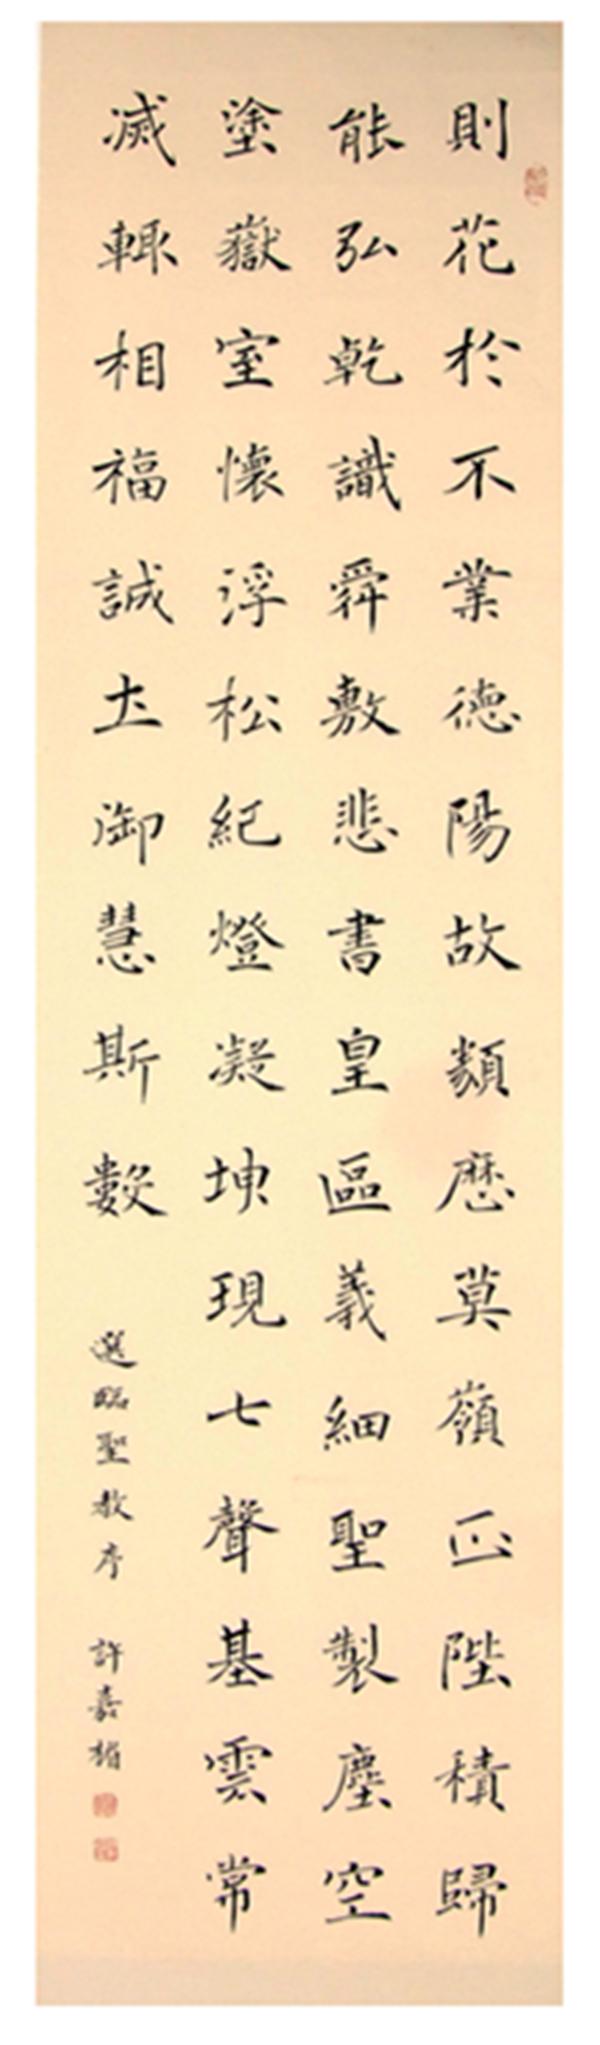 則花於不業德陽故類歷莫嶺正陛積歸
能弘乾識舜敷悲書皇區義細聖製塵空
塗嶽室懷浮松紀燈凝坤現七聲基雲常
滅輒相福誠土御慧斯數
選臨聖教序 許嘉